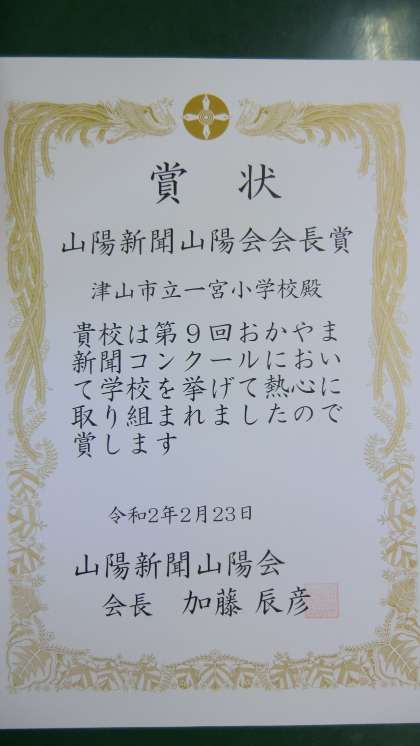 賞 状
山陽新聞山陽会会長賞
津山市立一宮小学校殿
貴校は第９回おかやま
新聞コンクールにおい
て学校を挙げて熱心に
取り組まれましたので
賞します
令和2年2月23日
山陽新聞山陽会
会長 加藤 辰彦